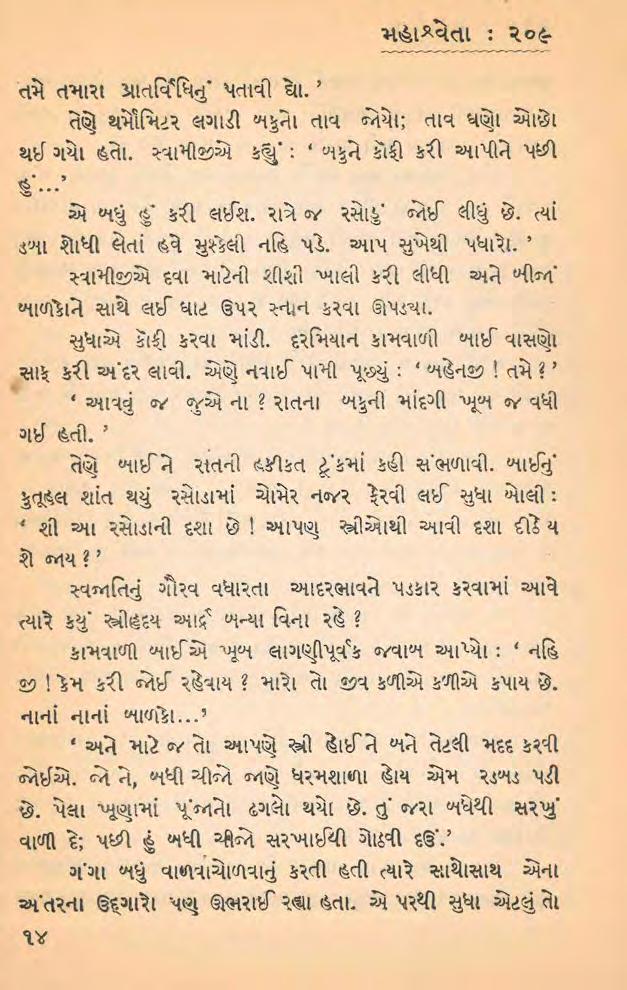 મહાશ્વેતા : ૨૦૯
તમે તમારા પ્રાતર્વિધિનું પતાવી દ્યો.’
તેણે થર્મોમિટર લગાડી બકુનો તાવ જોયો; તાવ ઘણો ઓછો
થઈ ગયો હતો. સ્વામીજીએ કહ્યું : ‘ બકુને કૉફી કરી આપીને પછી
હું...’
એ બધું હું કરી લઈશ. રાત્રે જ રસોડું જોઈ લીધું છે. ત્યાં
ડબા શોધી લેતાં હવે મુશ્કેલી નહિ પડે. આપ સુખેથી પધારો. ’
સ્વામીજીએ દવા માટેની શીશી ખાલી કરી લીધી અને બીજાં
બાળકોને સાથે લઈ ઘાટ ઉપર સ્નાન કરવા ઊપડ્યા.
સુધાએ કૉફી કરવા માંડી. દરમિયાન કામવાળી બાઈ વાસણો
સાફ કરી અંદર લાવી. એણે નવાઈ પામી પૂછ્યું : ‘ બહેનજી ! તમે ? ’
‘ આવવું જ જુએ ના ? રાતના બકુની માંદગી ખૂબ જ વધી
ગઈ હતી. ’
તેણે બાઈને રાતની હકીકત ટૂંકમાં કહી સંભળાવી. બાઈનું
કુતૂહલ શાંત થયું રસોડામાં ચોમેર નજર ફેરવી લઈ સુધા બોલી :
‘ શી આ રસોડાની દશા છે ! આપણ સ્ત્રીઓથી આવી દશા દીઠેય
શે જાય ? ’
સ્વજાતિનું ગૌરવ વધારતા આદરભાવને પડકાર કરવામાં આવે
ત્યારે કયું સ્ત્રીહૃદય આર્દ્ર બન્યા વિના રહે ?
કામવાળી બાઈએ ખૂબ લાગણીપૂર્વક જવાબ આપ્યો : ‘ નહિ
જી ! કેમ કરી જોઈ રહેવાય ? મારો તો જીવ કળીએ કળીએ કપાય છે.
નાનાં નાનાં બાળકો...’
‘ અને માટે જ તો આપણે સ્ત્રી હોઈને બને તેટલી મદદ કરવી
જોઈએ. જો ને, બધી ચીજો જાણે ધરમશાળા હોય એમ રડબડ પડી
છે. પેલા ખૂણામાં પૂંજાનો ઢગલો થયો છે. તું જરા બધેથી સરખું
વાળી દે; પછી હું બધી ચીજો સરખાઈથી ગોઠવી દઉં.’
ગંગા બધું વાળવાચોળવાનું કરતી હતી ત્યારે સાથોસાથ એના
અંતરના ઉદ્ગારો પણ ઊભરાઈ રહ્યા હતા. એ પરથી સુધા એટલું તો
૧૪